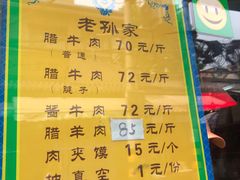 老孙家
腊牛肉 70元/斤
(普通)
腊牛肉 72元/斤
(腱子)
酱牛肉 72元/斤
腊羊肉 85元/斤
肉夹馍 15元/个
抽真空 1元/份